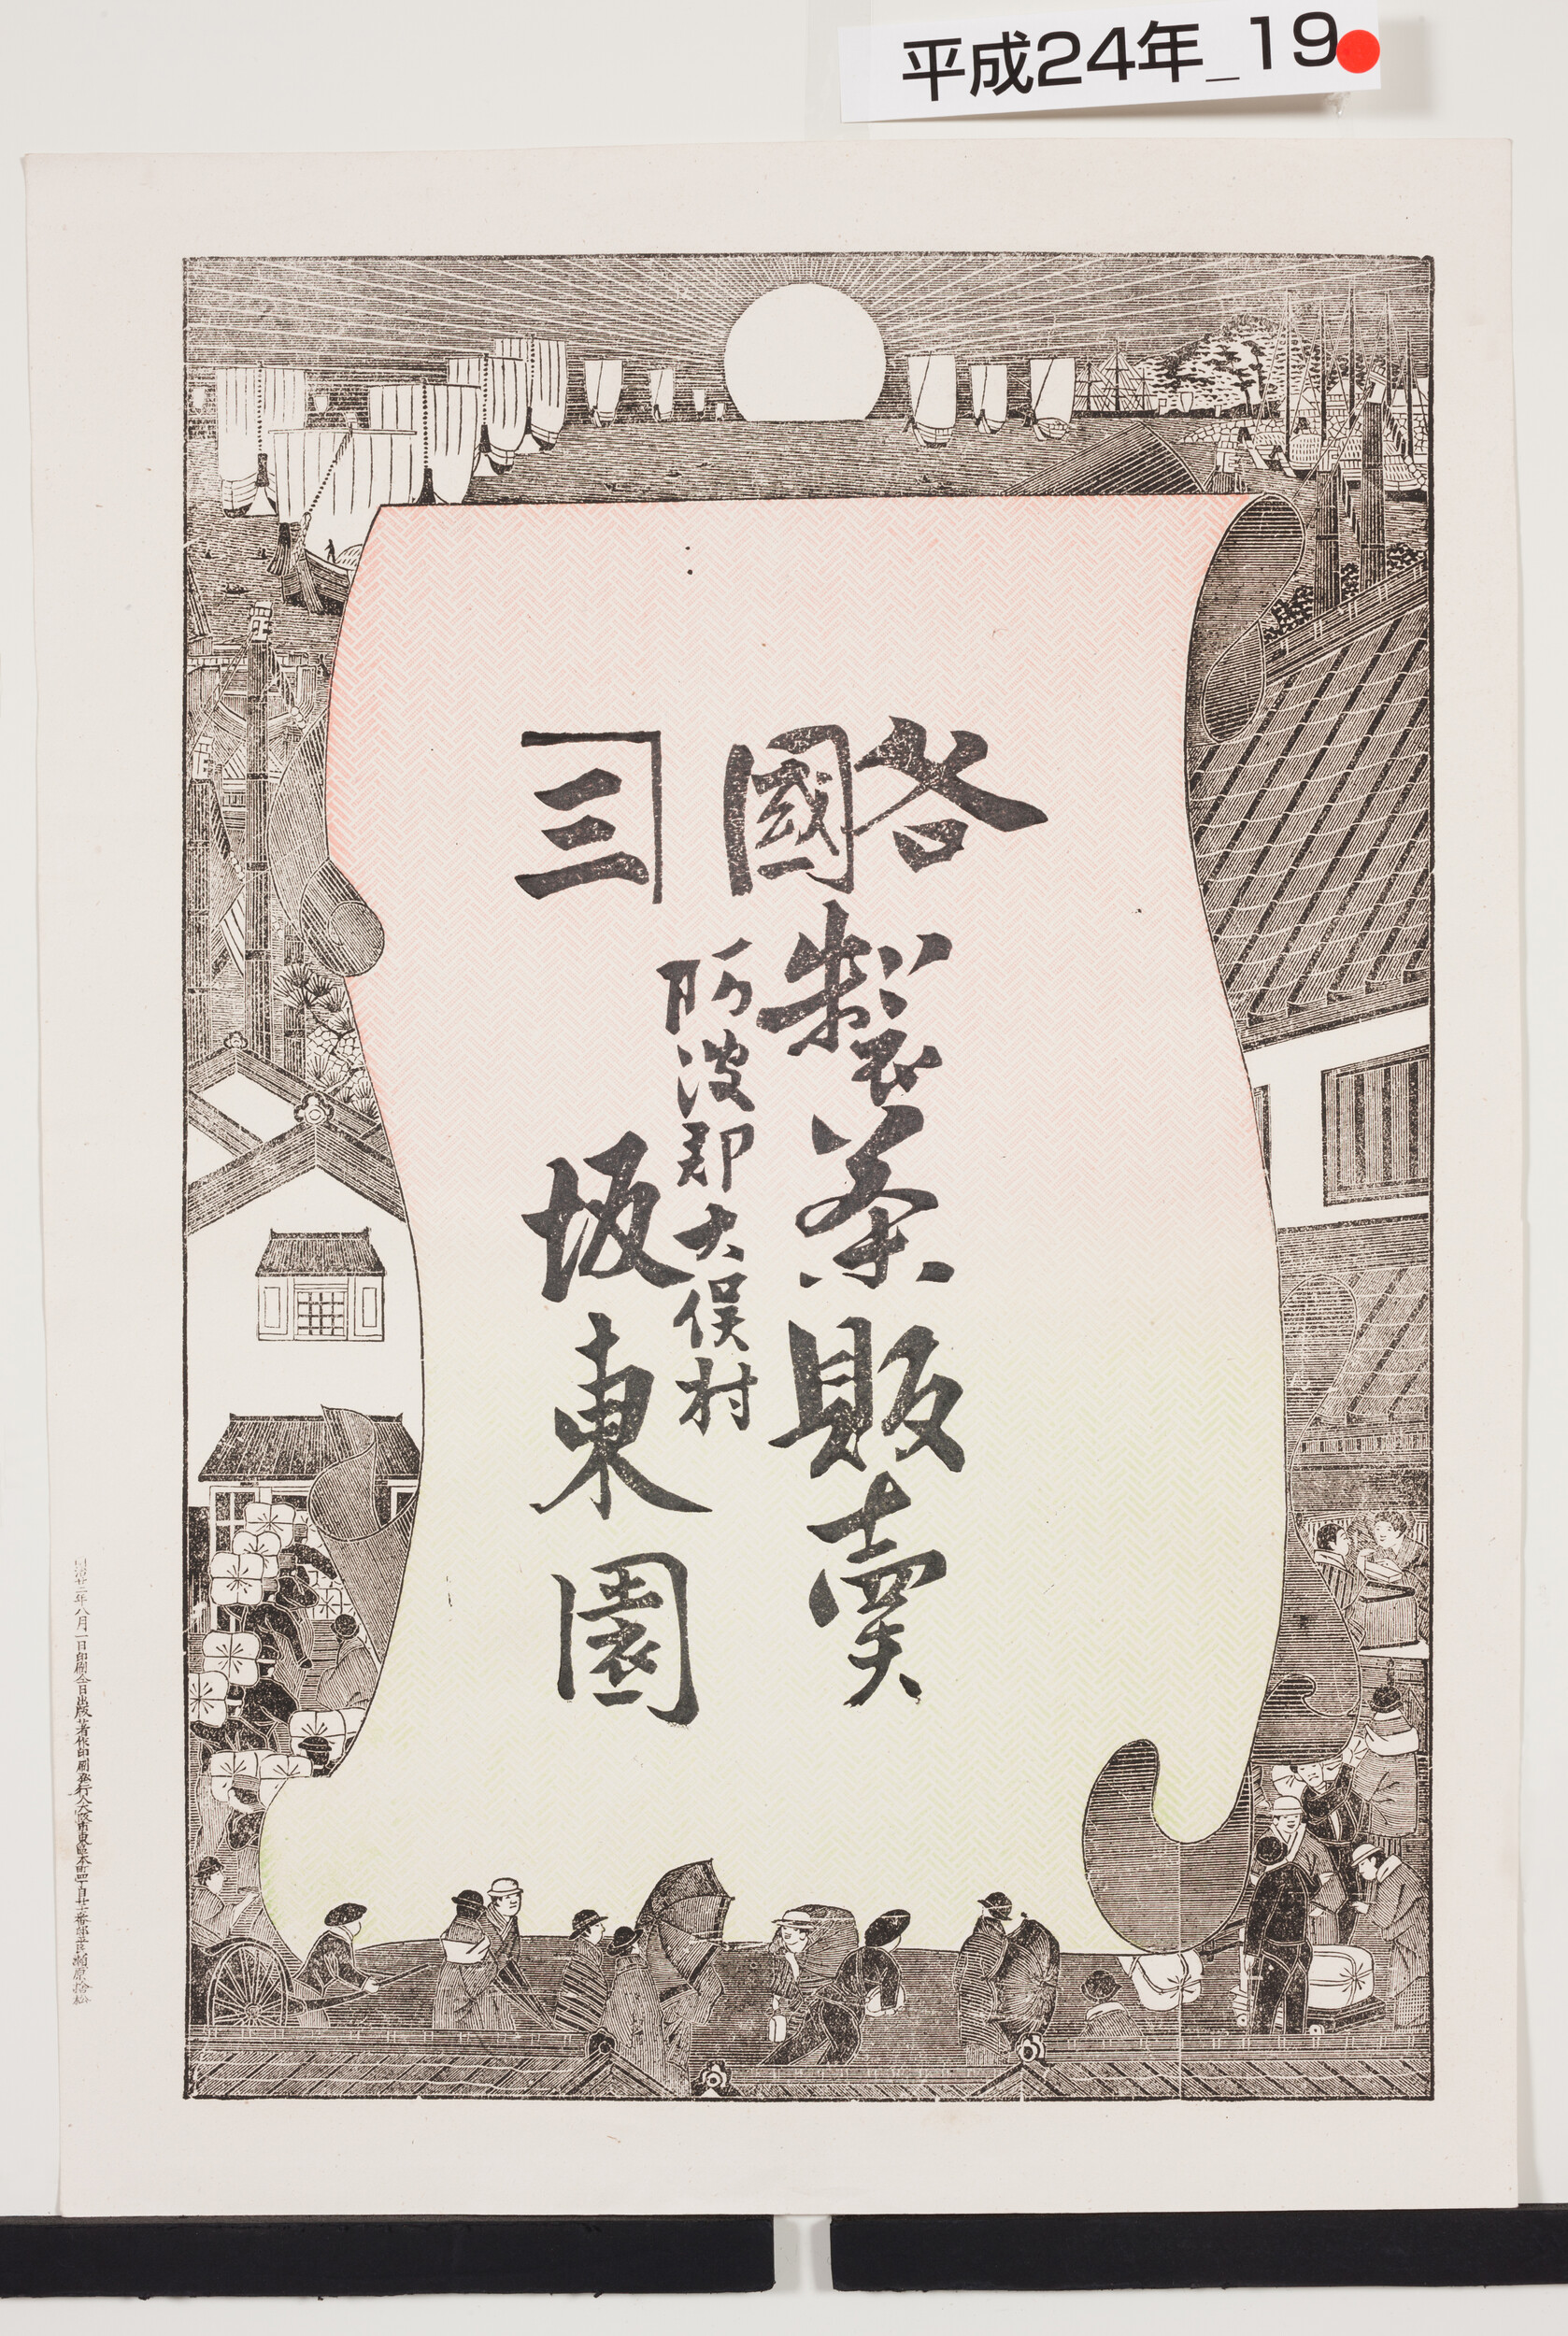 平成24年_19
各國製茶販賣
阿波郡大俣村
三
坂東園
明治廿二年八月一日印刷仝日出版著作印刷兼発行人大阪市東區本町四丁目廿二番邸平民瀬原捨松